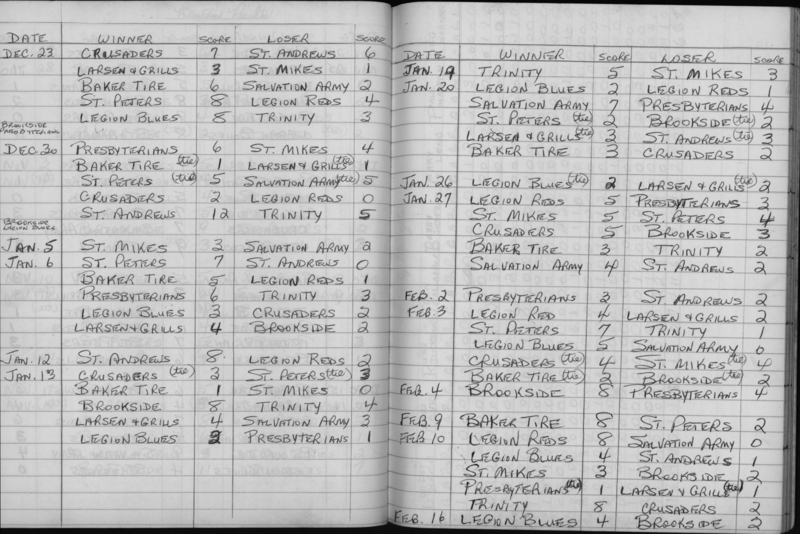 DATE WINNER SCORE LOSER SCORE
DEC. 23 CRUSADERS 7 ST. ANDREWS 6
LARSEN & GRILLS 3 ST. MIKES 1
BAKER TIRE 6 SALVATION ARMY 2
ST. PETERS 8 LEGION REDS 4
LEGION BLUES 8 TRINITY 3
BROOKSIDE
PRESBYTERIANS
DEC. 30 PRESBYTERIANS 6 ST. MIKES 4
BAKER TIRE (tie) 1 LARSEN & GRILLS (tie) 1
ST. PETERS (tie) 5 SALVATION ARMY (tie) 5
CRUSADERS 2 LEGION REDS 0
ST. ANDREWS 12 TRINITY 5
BROOKSIDE
LEGION BLUES
JAN. 5 ST. MIKES 3 SALVATION ARMY 2
JAN. 6 ST. PETERS 7 ST. ANDREWS 0
BAKER TIRE 5 LEGION REDS 1
PRESBYTERIANS 6 TRINITY 3
LEGION BLUES 3 CRUSADERS 2
LARSEN & GRILLS 4 BROOKSIDE 2
JAN. 12 ST. ANDREWS 8 LEGION REDS 2
JAN. 13 CRUSADERS (tie) 3 ST. PETERS (tie) 3
BAKER TIRE 1 ST. MIKES 0
BROOKSIDE 8 TRINITY 4
LARSEN & GRILLS 4 SALVATION ARMY 3
LEGION BLUES PRESBYTERIANS 1
DATE WINNER SCORE LOSER SCORE
JAN. 19 TRINITY 5 ST. MIKES 3
JAN. 20 LEGION BLUES 2 LEGION REDS 1
SALVATION ARMY 7 PRESBYTERIANS 4
ST. PETERS (tie) 2 BROOKSIDE (tie) 2
LARSEN & GRILLS (tie) 3 ST. ANDREWS (tie) 3
BAKER TIRE 3 CRUSADERS 2
JAN. 26 LEGION BLUES (tie) 2 LARSEN & GRILLS (tie) 2
JAN. 27 LEGION REDS 5 PRESBYTERIANS 3
ST. MIKES 5 ST. PETERS 4
CRUSADERS 5 BROOKSIDE 3
BAKER TIRE 3 TRINITY 2
SALVATION ARMY 4 ST. ANDREWS 2
FEB. 2 PRESBYTERIANS 3 ST. ANDREWS 2
FEB. 3 LEGION RED 4 LARSEN & GRILLS 2
ST. PETERS 7 TRINITY 1
LEGION BLUES 5 SALVATION ARMY 0
CRUSADERS (tie) 4 ST. MIKES (tie) 4
BAKER TIRE (tie) 2 BROOKSIDE (tie) 2
FEB. 4 BROOKSIDE 8 PRESBYTERIANS 4
FEB. 9 BAKER TIRE 8 ST. PETERS 2
FEB. 10 LEGION REDS 8 SALVATION ARMY 0
LEGION BLUES 4 ST. ANDREWS 1
ST. MIKES 3 BROOKSIDE 2
PRESBYTERIANS (tie) 1 LARSEN & GRILLS (tie) 1
TRINITY 8 CRUSADERS 2
FEB. 16 LEGION BLUES 4 BROOKSIDE 2